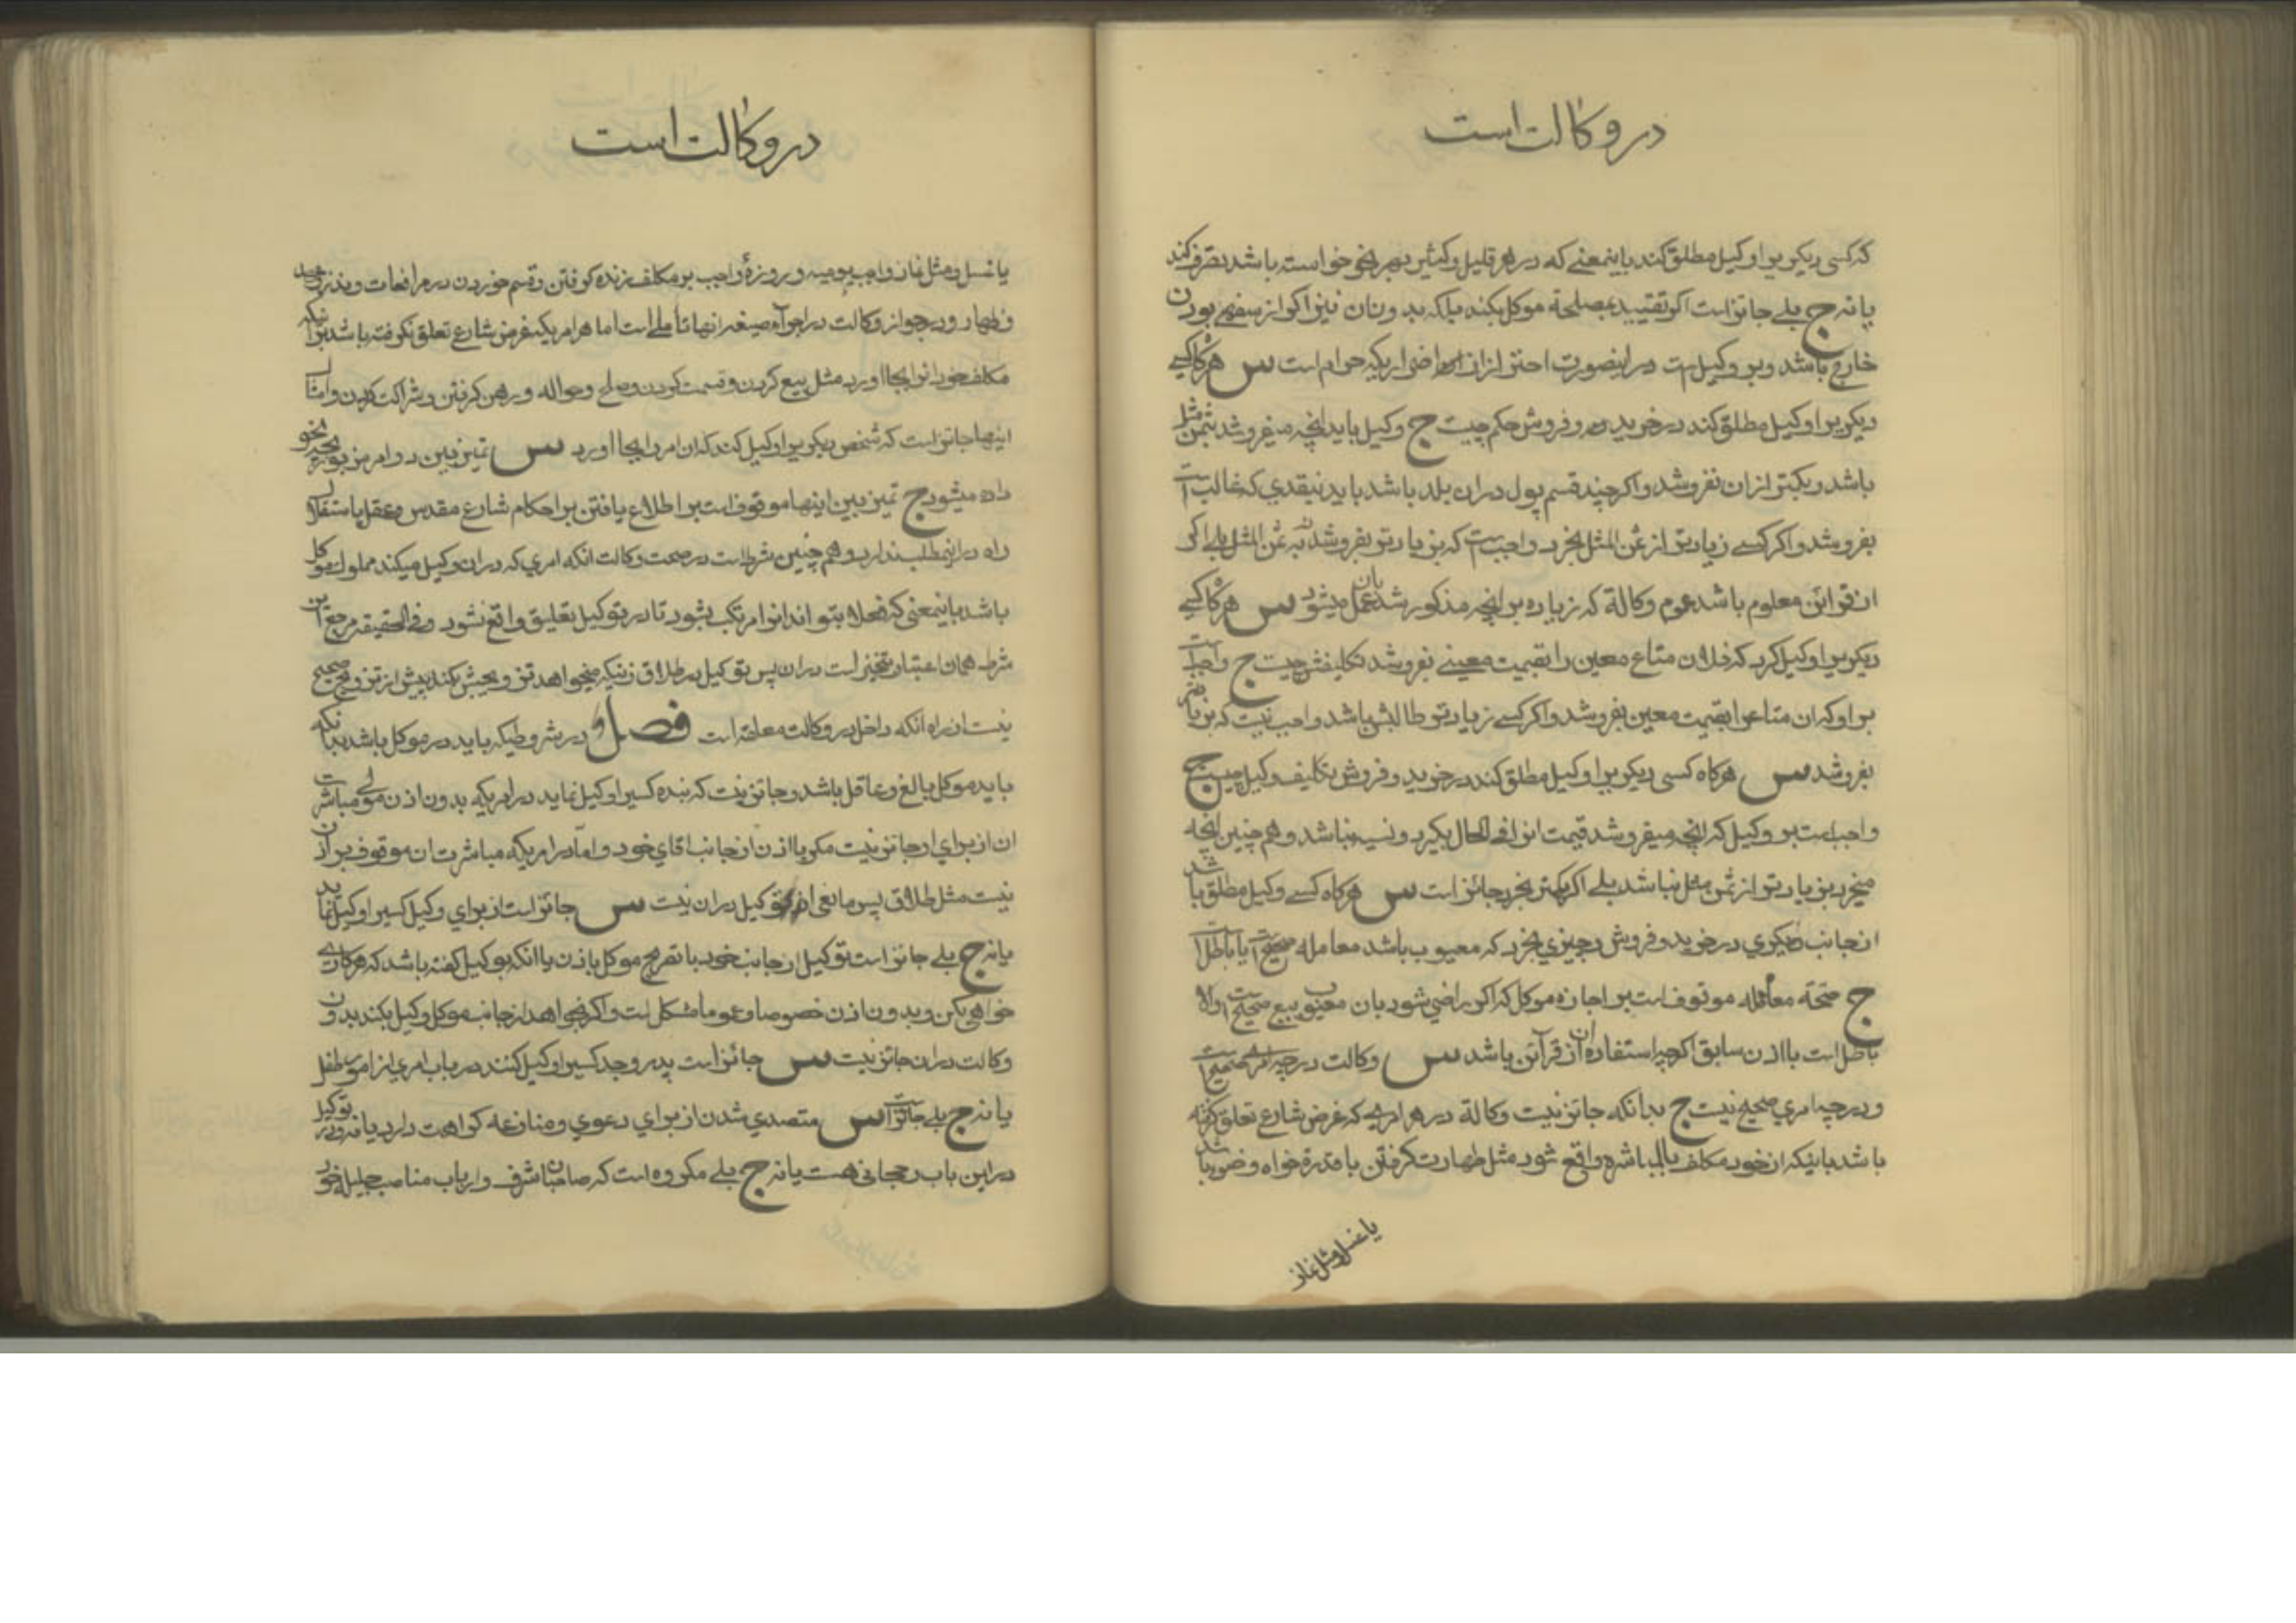 در وکالت است
که کسی دیکریرا وکیل مطلق کند باینمعنے که در هر قلیل وکثیر بهر نحو خواسته باشد تصرف کند
یا نه ج بلے جائز است اکر تقیید بمصلحة موکل بکند بلکه بدون ان نیز اکر از سفهے بودن
خارج باشد وبر وکیل است در اینصورت احتراز از اضراریکه حرام است س هرکاه کسے
دیکریرا وکیل مطلق کند در خرید وفروش حکم چیست ج وکیل باید انچه میفروشد بثمن مثل
باشد وبکمتر از ان نفروشد واکر چند قسم پول در ان بلد باشد باید بنقدی که غالب است
بفروشد واکر کسے زیادتر از ثمن المثل بخرد واجب است که بزیادتر بفروشد نه بثمن المثل بلے اکر
از قرائن معلوم باشد عموم وکالة که زیاده بر انچه مذکور شد بان عمل میشود س هرکاه کسے
دیکریرا وکیل کرد که فلان متاع معین را بقیمت معینے بفروشد تکلیفش چیست ج واجب است
بر او که ان متاعرا بقیمت معین بفروشد واکر کسے زیادتر طالبش باشد واجب نیست که بزیادتر
بفروشد س هرکاه کسی دیکریرا وکیل مطلق کند در خرید وفروش تکلیف وکیل چیست ج
واجب است بر وکیل که انچه میفروشد قیمت انرا فے الحال بکیرد ونسیه نباشد وهم چنین انچه
میخرد بزیادتر از ثمن مثل نباشد بلے اکر بکمتر بخرد جائز است س هرکاه کسے وکیل مطلق باشد
از جانب دیکری در خرید وفروش وچیزی بخرد که معیوب باشد معامله صحیح است یا باطل است
ج صحة معامله موقوف است بر اجازه موکل که اکر راضی شود بان معیوب بیع صحیح است والا
باطل است یا اذن سابق اکرچه استفاده ان از قرآئن باشد س وکالت در چه امری صحیح است
ودر چه امری صحیح نیست ج بدانکه جائز نیست وکالة در هر امریکه غرض شارع تعلق کرفته
باشد باینکه از خود مکلف بالمباشره واقع شود مثل طهارت کرفتن با قدرة خواه وضو باشد
یا غسل ومثل نماز
در وکالت است
یا غسل ومثل نماز واجب یومیه وروزهٔ واجب بر مکلف زنده کرفتن وقسم خوردن در مرافعات ونذر وعهد
وظهار ودر جواز وکالت در اجرآء صیغه اینها تاملے است اما هر امریکه غرض شارع تعلق نکرفته باشد بر اینکه
مکلف خود انرا بجا اورد مثل بیع کردن وقسمت کردن وصلح وحواله ورهن کرفتن وشراکت کردن وامثال
اینها جائز است که شخص دیکریرا وکیل کند که ان امر را بجا اورد س تمیز بین دو امر مزبور بچه نحو
داده میشود ج تمیز بین اینها موقوف است بر اطلاع یافتن بر احکام شارع مقدس وعقل باستقلال
راه در اینمطلب ندارد وهم چنین شرط است در صحت وکالت انکه امری که در ان وکیل میکند مملوک موکل
باشد باینمعنی که فعلا بتواند انرا مرتکب بشود تا در توکیل تعلیق واقع نشود وفے الحقیقه مرجع این
شرط همان اعتبار تنجیز است در ان پس توکیل در طلاق زنیکه میخواهد تزویجش کند پیش از تزویج صحیح
نیست از راه انکه داخل در وکالت معلقه است فصل در شروطیکه باید در موکل باشد بدانکه
باید موکل بالغ وعاقل باشد وجائز نیست که بنده کسیرا وکیل نماید در امریکه بدون اذن مولے مباشرت
ان از برای او جائز نیست مکر با اذن از جانب اقای خود واما در امریکه مباشرت ان موقوف بر اذن
نیست مثل طلاق پس مانعی از توکیل در ان نیست س جائز است از برای وکیل کسیرا وکیل نماید
یا نه ج بلے جائز است توکیل از جانب خود با تصریح موکل باذن یا انکه بوکیل کفته باشد که هر کاری
خواهی بکن وبدون اذن خصوصا وعموما مشکل است واکر بخواهد از جانب موکل وکیل بکند بدون
وکالت در ان جائز نیست س جائز است پدر وجد کسیرا وکیل کنند در باب امری از امور طفل
یا نه ج بلے جائز است س متصدی شدن از برای دعوی ومنازعه کراهت دارد یا نه وتوکیل
در این باب رجحانی هست یا نه ج بلے مکروه است که صاحبان شرف وارباب مناصب جلیله خود